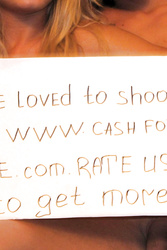 E LOVED TO SHOO
WWW. CASH FO
E.COM. RATE US
TO GET MORE